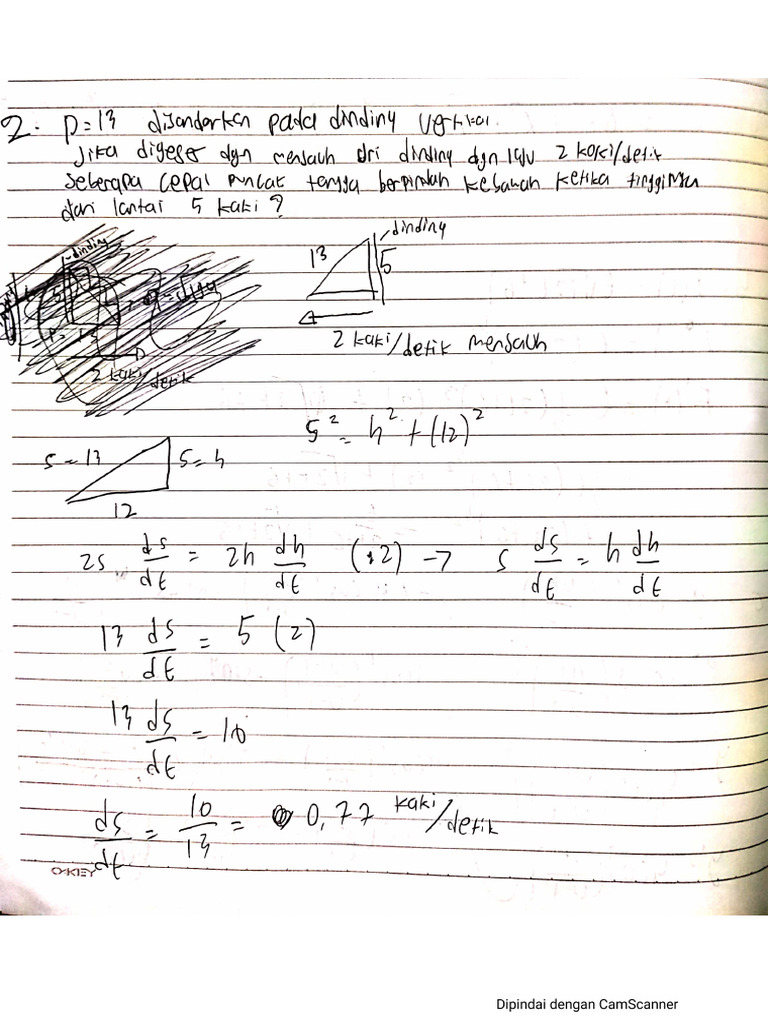 2. P=13 disandarkan pada dinding vertikal.
Jika digeser dgn menjauh dri dinding dgn laju 2 kaki/detik
seberapa cepat puncak tangga berpindah kebawah ketika tingginya
dari lantai 5 kaki?
dinding
dinding
13
5
2 kaki/detik menjauh
2 kaki/detik
s² = h² + (12)²
s = 13
5 = h
12
2s ds/dt = 2h dh/dt (÷2) → s ds/dt = h dh/dt
13 ds/dt = 5 (2)
13 ds/dt = 10
ds/dt = 10/13 = 0,77 kaki/detik
OAKEY
Dipindai dengan CamScanner